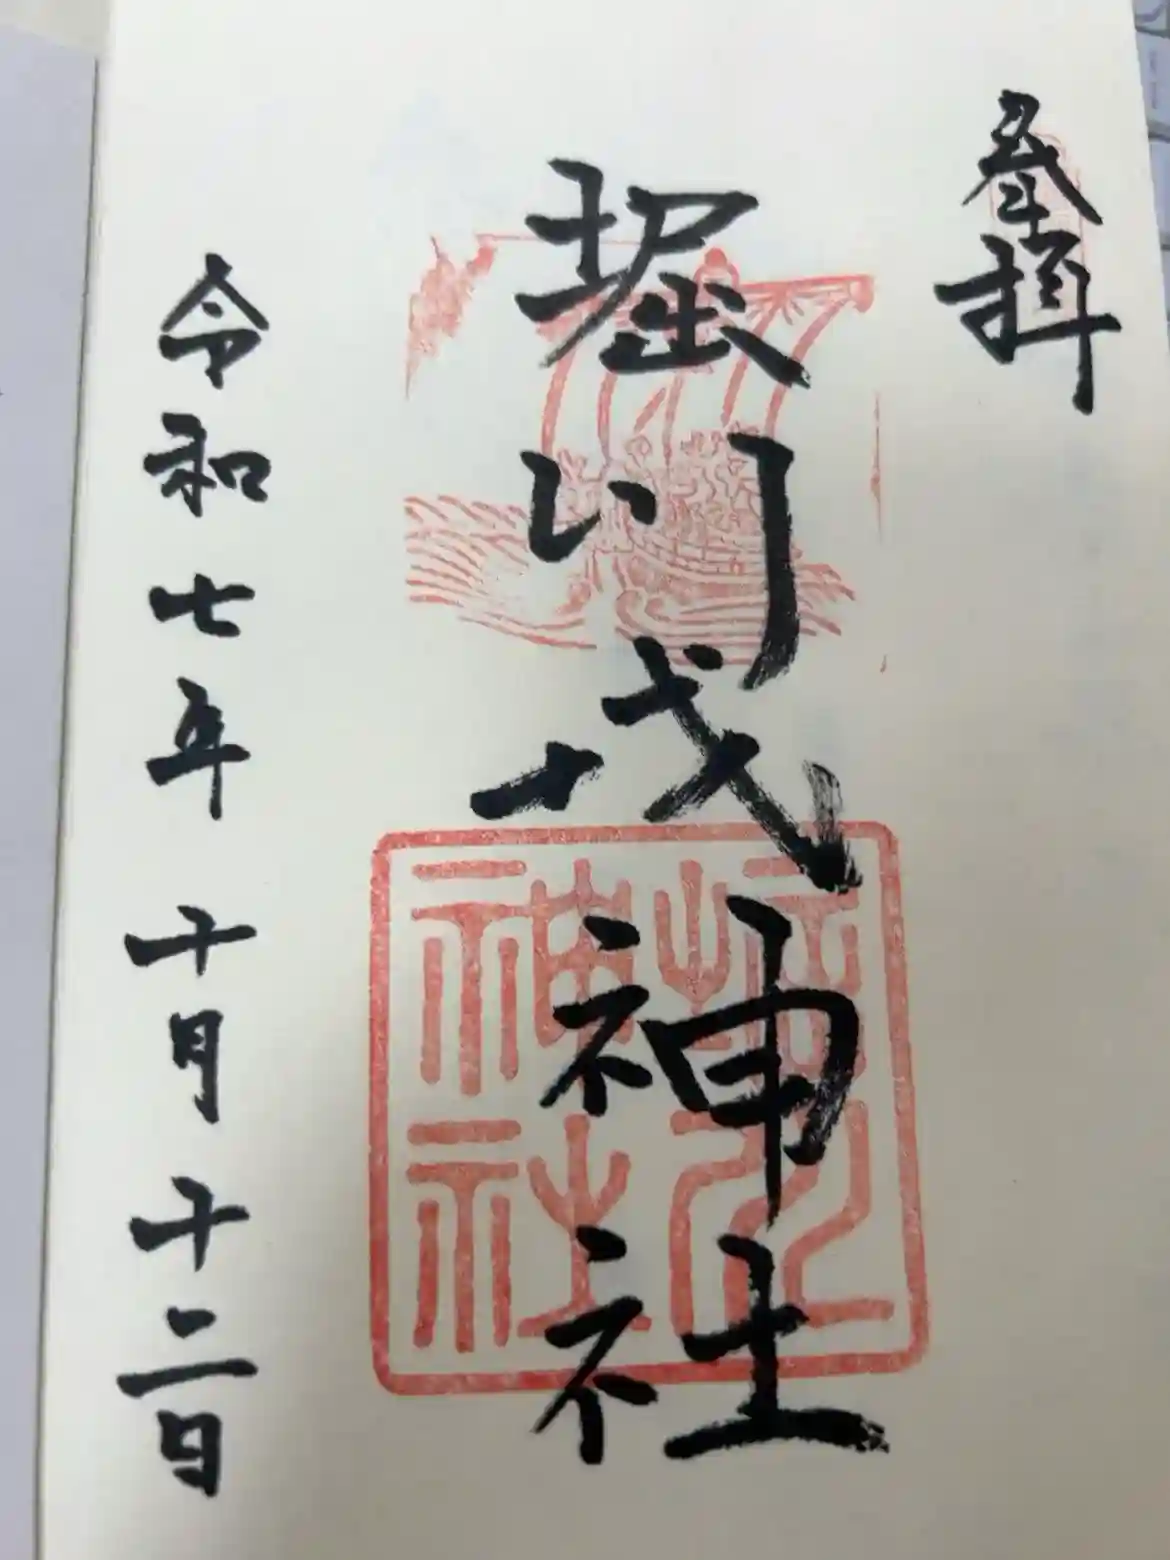 奉拝
堀川戎神社
令和七年十月十二日
堀川
神社